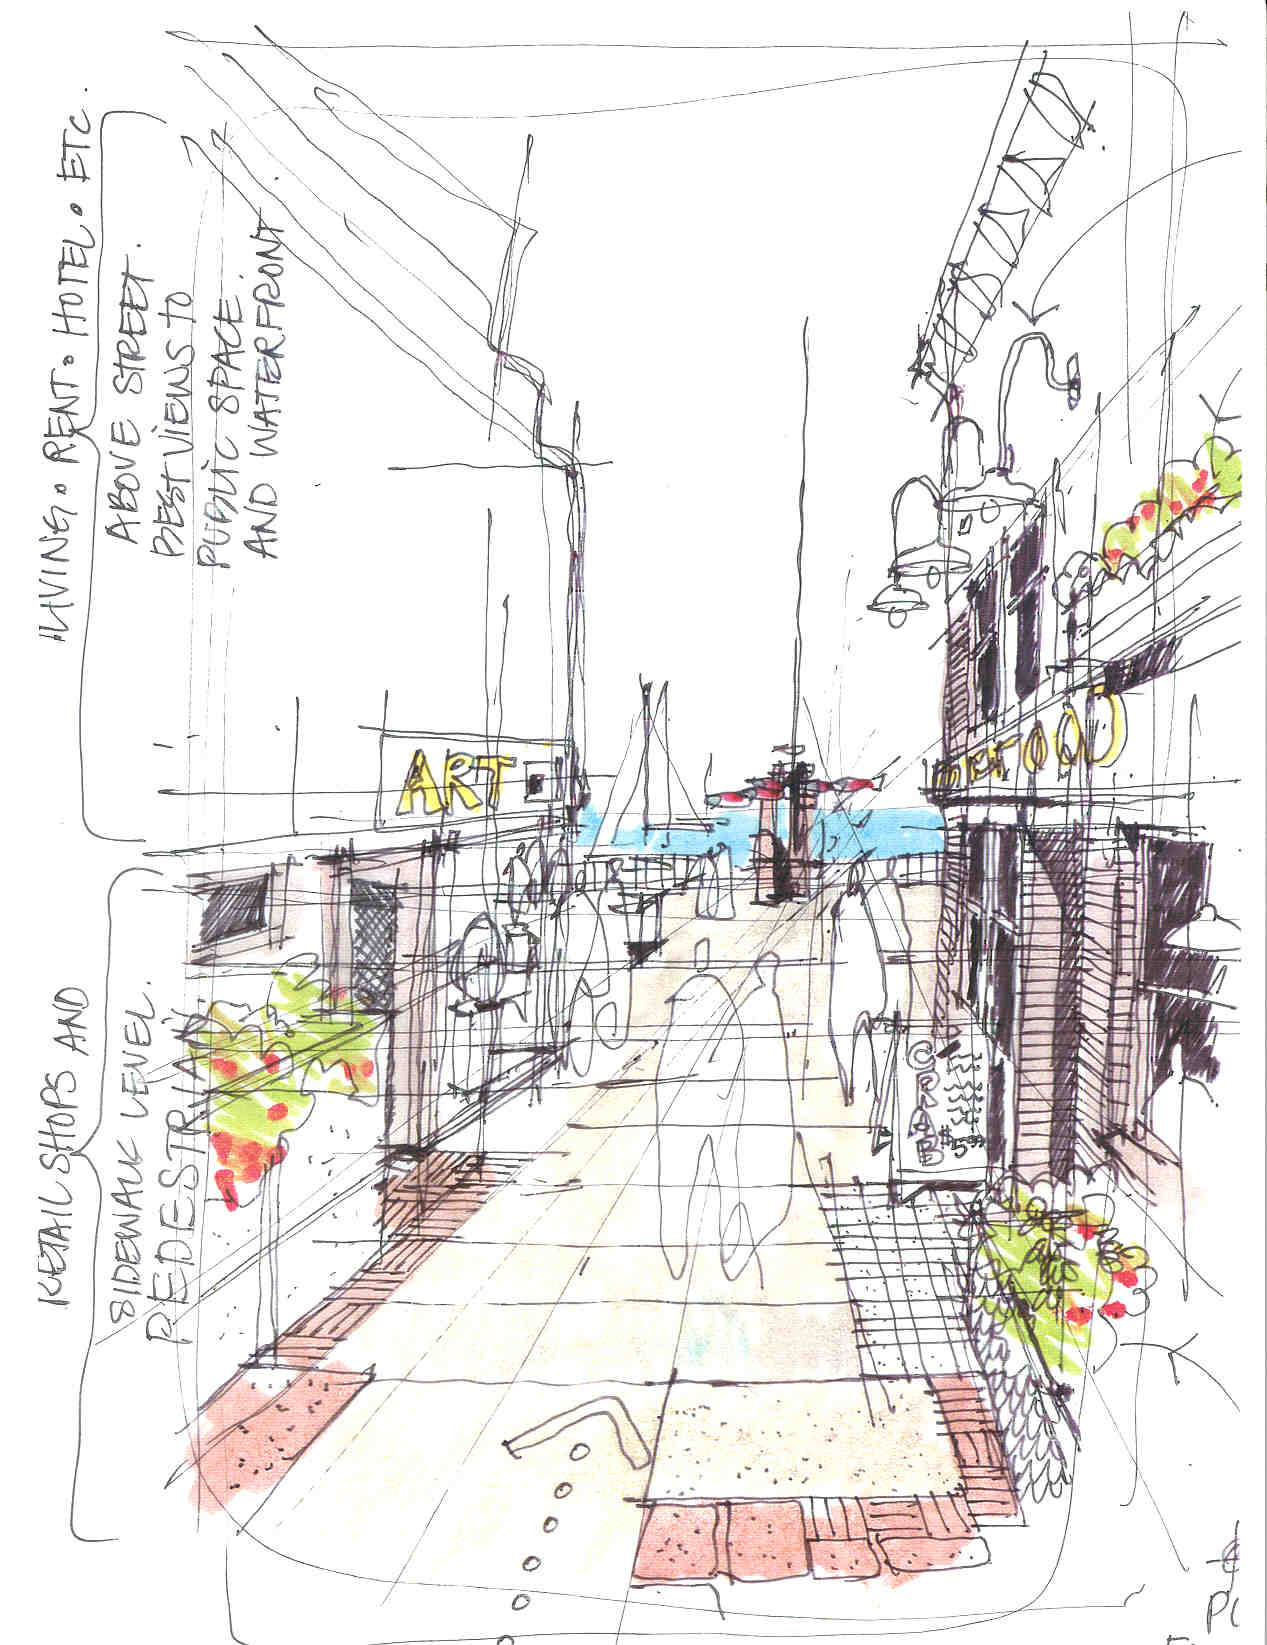 LIVING • RENT • HOTEL • ETC.
ABOVE STREET.
BEST VIEWS TO
PUBLIC SPACE
AND WATERFRONT
RETAIL SHOPS AND
SIDEWALK LEVEL.
PEDESTRIAN.
ART
CRAB
$5.99